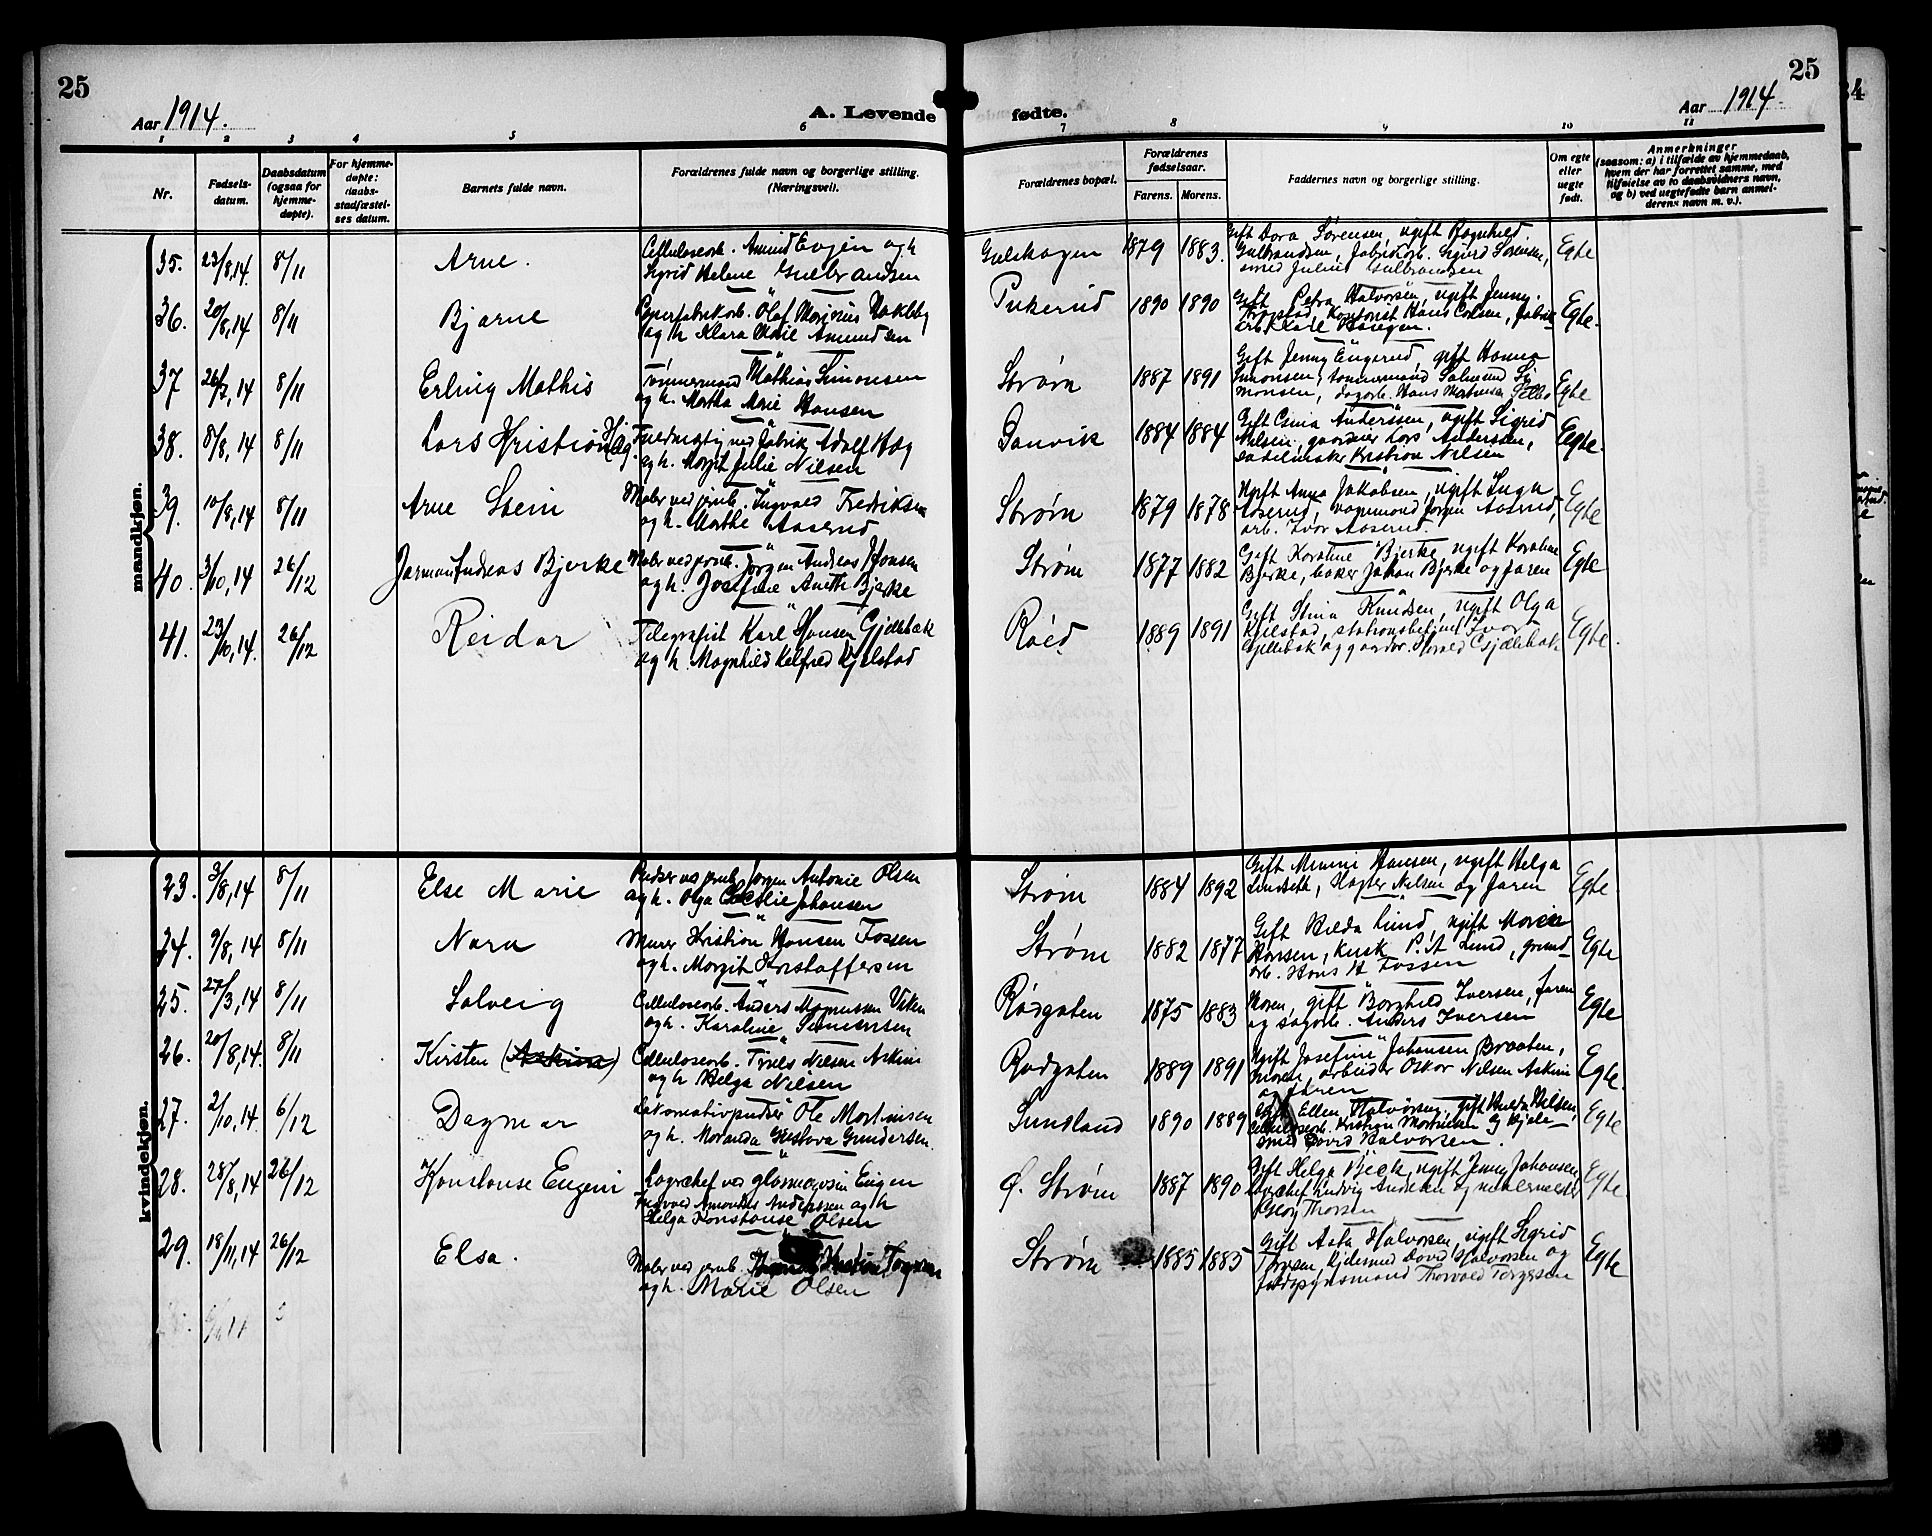 25
25
Aar 1914.
A. Levende fødte.
Aar 1914.
1 2 3 4 5 6 7 8 9 10 11
Nr.
Fødsels-
datum.
Daabsdatum
(ogsaa for
hjemme-
døpte).
For hjemme-
døpte:
daabs-
stadfæstel-
ses datum.
Barnets fulde navn.
Forældrenes fulde navn og borgerlige stilling.
(Næringsvei).
Forældrenes bopæl.
Forældrenes
fødselsaar.
Farens. Morens.
Faddernes navn og borgerlige stilling.
Om egte
eller
uegte
født.
Anmerkninger
(saasom: a) i tilfælde av hjemmedaab,
hvem der har forrettet samme, med
tilføielse av to daabsvidners navn,
og b) ved uegtefødte barn anmel-
derens navn m. v.).
mandkjøn.
35. 23/8,14. 8/11 Arne.
Cellulosearb. Amund Evjen og h
Sigrid Helene Gulbrandsen
Gulskogen 1879 1883.
Gift Dora Sørensen, ugift Ragnhild
Gulbrandsen, fabrikarb. Sigurd Sørensen,
smed Julius Gulbrandsen
Egte
36. 20/8,14 8/11 Bjarne
Papirfabrikarb. Olaf Marjorius Hakleby
og h. Klara Marie Amundsen
Pukerud 1890 1890
Gift Petra Halvorsen, ugift Jenny
Kontorist Hans Carlsen,
Egte.
37 26/7,14 8/11 Erling Mathis
Tømmermand Mathias Simonsen
og h. Martha Marie Hansen
Strøm 1887 1891
Gift Jenny Engerud, gift Hanna
Simonsen, tømmermand Salmund Si
monsen, dagarb. Hans
Egte
38. 8/8,14 8/11 Lars Kristian Hag.
Fuldmægtig ved fabrik Adolf Hag
og h. Margit Julie Nilsen
Danvik 1884 1884
Anderssen, ugift Sigrid
Nilsen, gaardbr. Lars Anderssen,
sadelmaker Kristian Nilsen
Egte.
39. 10/8,14 8/11 Arne Stein
Maler ved jernb. Ingvald Fredriksen
og h. Marthe Aaserud
Strøm 1879 1878
Ugift Anna Jakobsen, ugift Inga
Aaserud, vognmand Jørgen Aaserud,
arb. Ivar Aaserud.
Egte
40. 3/10,14 26/12 Jarman Andreas Bjerke
Maler ved jernb. Jørgen Andreas Hansen
og h. Josefine Aneth Bjerke
Strøm 1877 1882
Gift Karoline Bjerke, ugift Karoline
Bjerke, baker Johan Bjerke og faren
Egte
41. 23/10,14. 26/12 Reidar
Telegrafist Karl Hansen Gjellebæk
og h. Magnhild Kjelstad
Røed 1889 1891
Gift Stina Knudsen, ugift Olga
Kjelstad, stationsbetjent Ivar
Gjellebæk og gaardbr. Gjellebæk
Egte.
kvindekjøn.
23. 3/8,14 8/11 Else Marie
Pudser ved jernb. Jørgen Antonie Olsen
og h. Olga Cecilie Johansen
Strøm 1884 1892
Gift Minnie Hansen, ugift Helga
Nilsen og faren
Egte.
24. 9/8,14 8/11 Nora
Murer Kristian Hansen Fossen
og h. Margit Kristoffersen
Strøm 1882 1877
Gift Hilda Lund, ugift Maria
Hansen, kusk P. A Lund, grund-
arb. Hans H Fossen
Egte
25. 27/3,14 8/11 Solveig
Cellulosearb. Anders Magnussen Viken
og h. Karoline
Rødgaten 1875 1883
Moren, gift Borghild Iversen, faren
og sagarb. Anders Iversen
Egte
26. 20/8,14. 8/11 Kirsten (Askim)
Cellulosearb. Troels Nilsen Askim
og h Helga Nilsen
Rødgaten 1889 1891
Ugift Josefine Johansen Braaten,
moren, arbeider Oskar Nilsen Askim
og faren
Egte.
27. 2/10,14. 6/12 Dagmar
Lokomotivpudser Ole Martinisen
og h. Moranda Gustava Gundersen
Sundland 1890 1889
Gift Ellen Halvorsen, gift Hulda Nilsen,
Cellulosearb. Kristian Martinisen og kjele-
smed David Halvorsen.
Egte
28. 28/8,14 26/12 Konstanse Eugeni
Lagerchef ved glasmagasin Eugen
Amandus Anderssen og h
Helga Konstanse Olsen
Ø. Strøm 1887 1890
Gift Helga Beck, ugift Jenny Johansen,
Lagerchef Ludvig Andersen og malermester
Georg Thorsen
Egte.
29. 18/11,14 26/12 Elsa.
Maler ved jernb. Kristian Torgersen
og h. Marie Olsen
Strøm 1885 1885
Gift Asta Halvorsen, ugift Sigrid
Torgersen, kjelesmed David Halvorsen og
Thorvald Torgersen
Egte